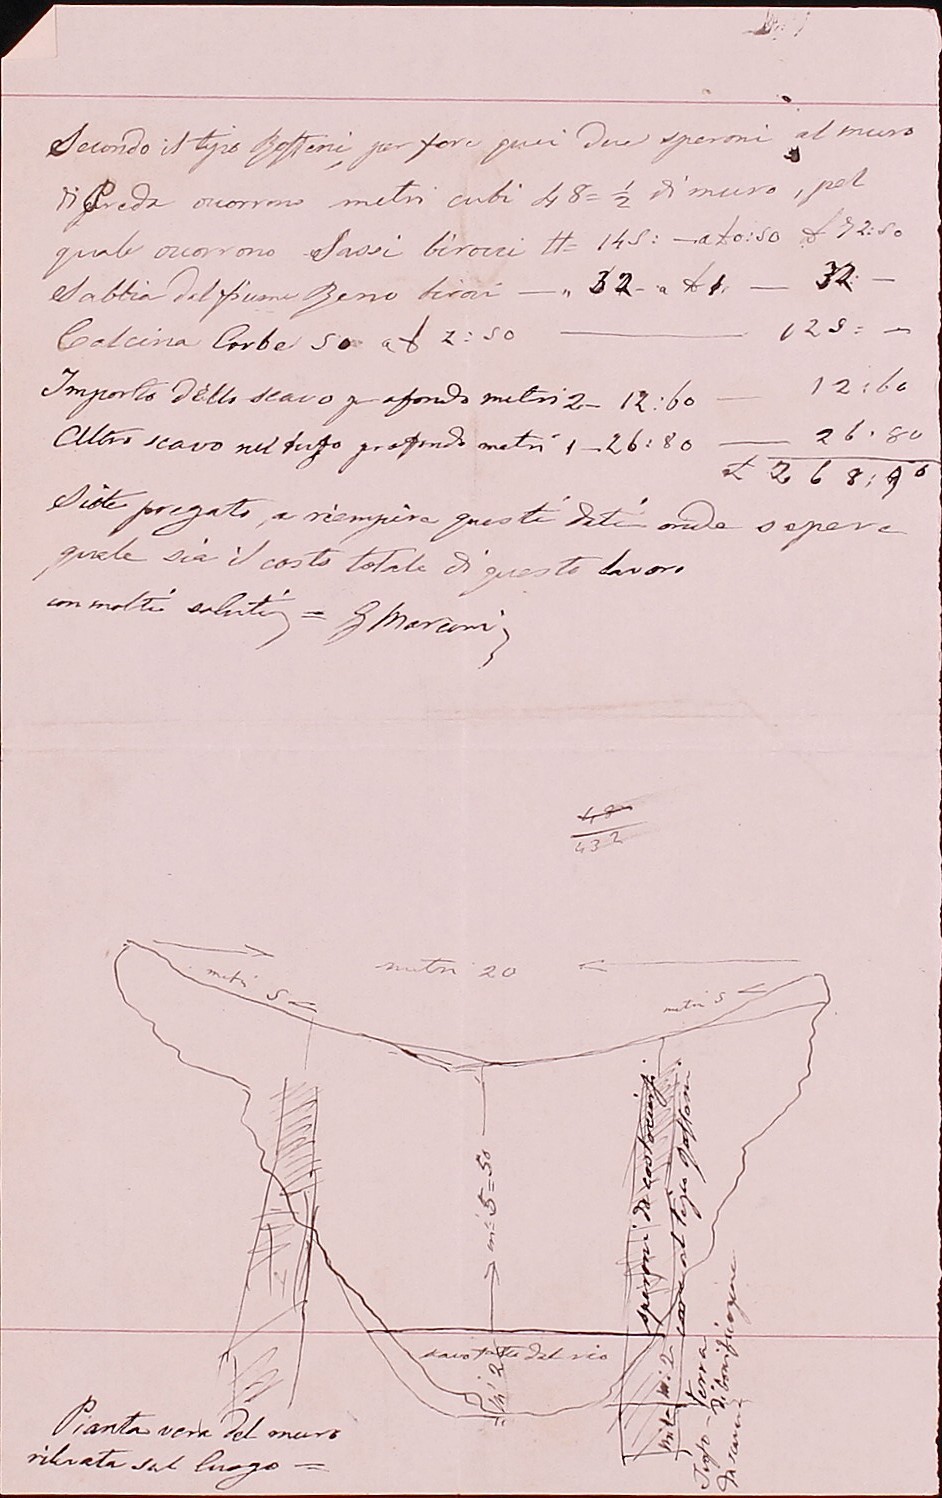 Secondo il tipo Boffeni, per fare quei due speroni al muro
di Preda ocorrono metri cubi 48= 1/2 di muro, pel
quale ocorrono Sassi birocci N= 145: — a £ 0:50 £ 72:50
Sabbia del fiume Reno birocci — „ 32 — a £ 1. — 32: —
Calcina Corbe 50 a £ 2:50 — 125: —
Importo dello scavo profondo metri 2 — 12:60 — 12:60
Altro scavo nel tufo profondo metri 1 — 26:80 — 26:80
£ 268:90
Siete pregato a riempire questi dati onde sapere
quale sia il costo totale di questo lavoro
con molti saluti = G Marconi
48
432
metri 20
metri 5
metri 5
m: 5=50
scavo fatto dal rio
m: 2
speroni da costruirsi
come al tipo Boffeni
m: 2
Tufo - Terra
di bonificazione
da scavarsi
Pianta vera del muro
rilevata sul luogo =